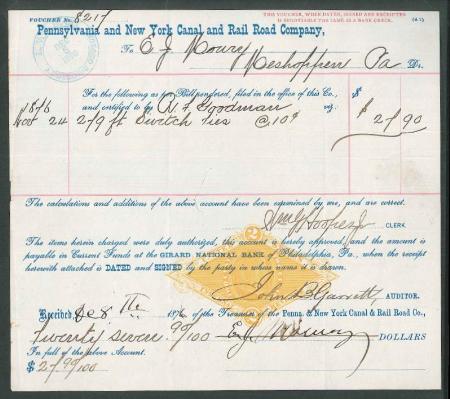 VOUCHER No. 8217
THIS VOUCHER, WHEN DATED, SIGNED AND RECEIPTED
IS NEGOTIABLE THE SAME AS A BANK CHECK.
Pennsylvania and New York Canal and Rail Road Company,
To E J Mowry
Meshoppen Pa Dr.
For the following as per Bill rendered, filed in the office of this Co., $
1876 and certified to by R. F. Goodman viz:
Nov 24 279 ft Switch Ties @ 10¢ $ 27 90
The calculations and additions of the above account have been examined by me, and are correct.
CLERK.
The items herein charged were duly authorized, this account is hereby approved, and the amount is
payable in Current Funds at the GIRARD NATIONAL BANK of Philadelphia, Pa., when the receipt
herewith attached is DATED and SIGNED by the party in whose name it is drawn.
John B Garrett, AUDITOR.
Received, Dec 8th 1876 of the Treasurer of the Penna. & New York Canal & Rail Road Co.,
Twenty Seven 90/100 DOLLARS
In full of the above Account. E J Mowry
$ 27 90/100